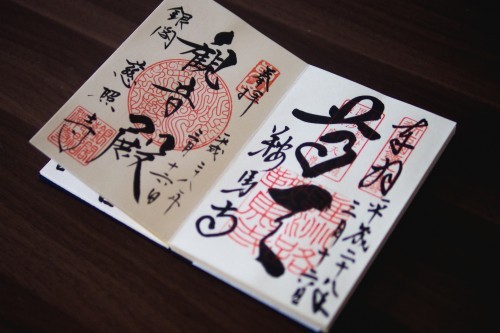 奉拝
平成二十八年
三月十六日
尊天
鞍馬寺
奉拝
平成二十八年
三月十六日
観音殿
銀閣
慈照寺